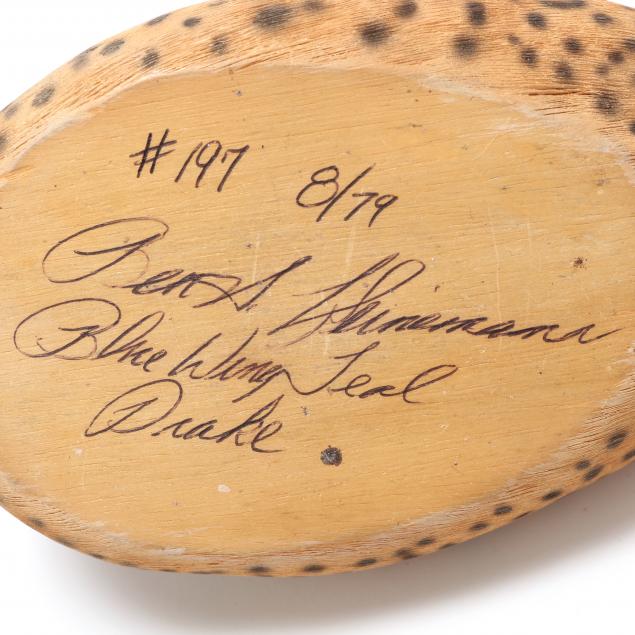 #197 8/79
Ben S. Heinemann
Blue Wing Teal
Drake